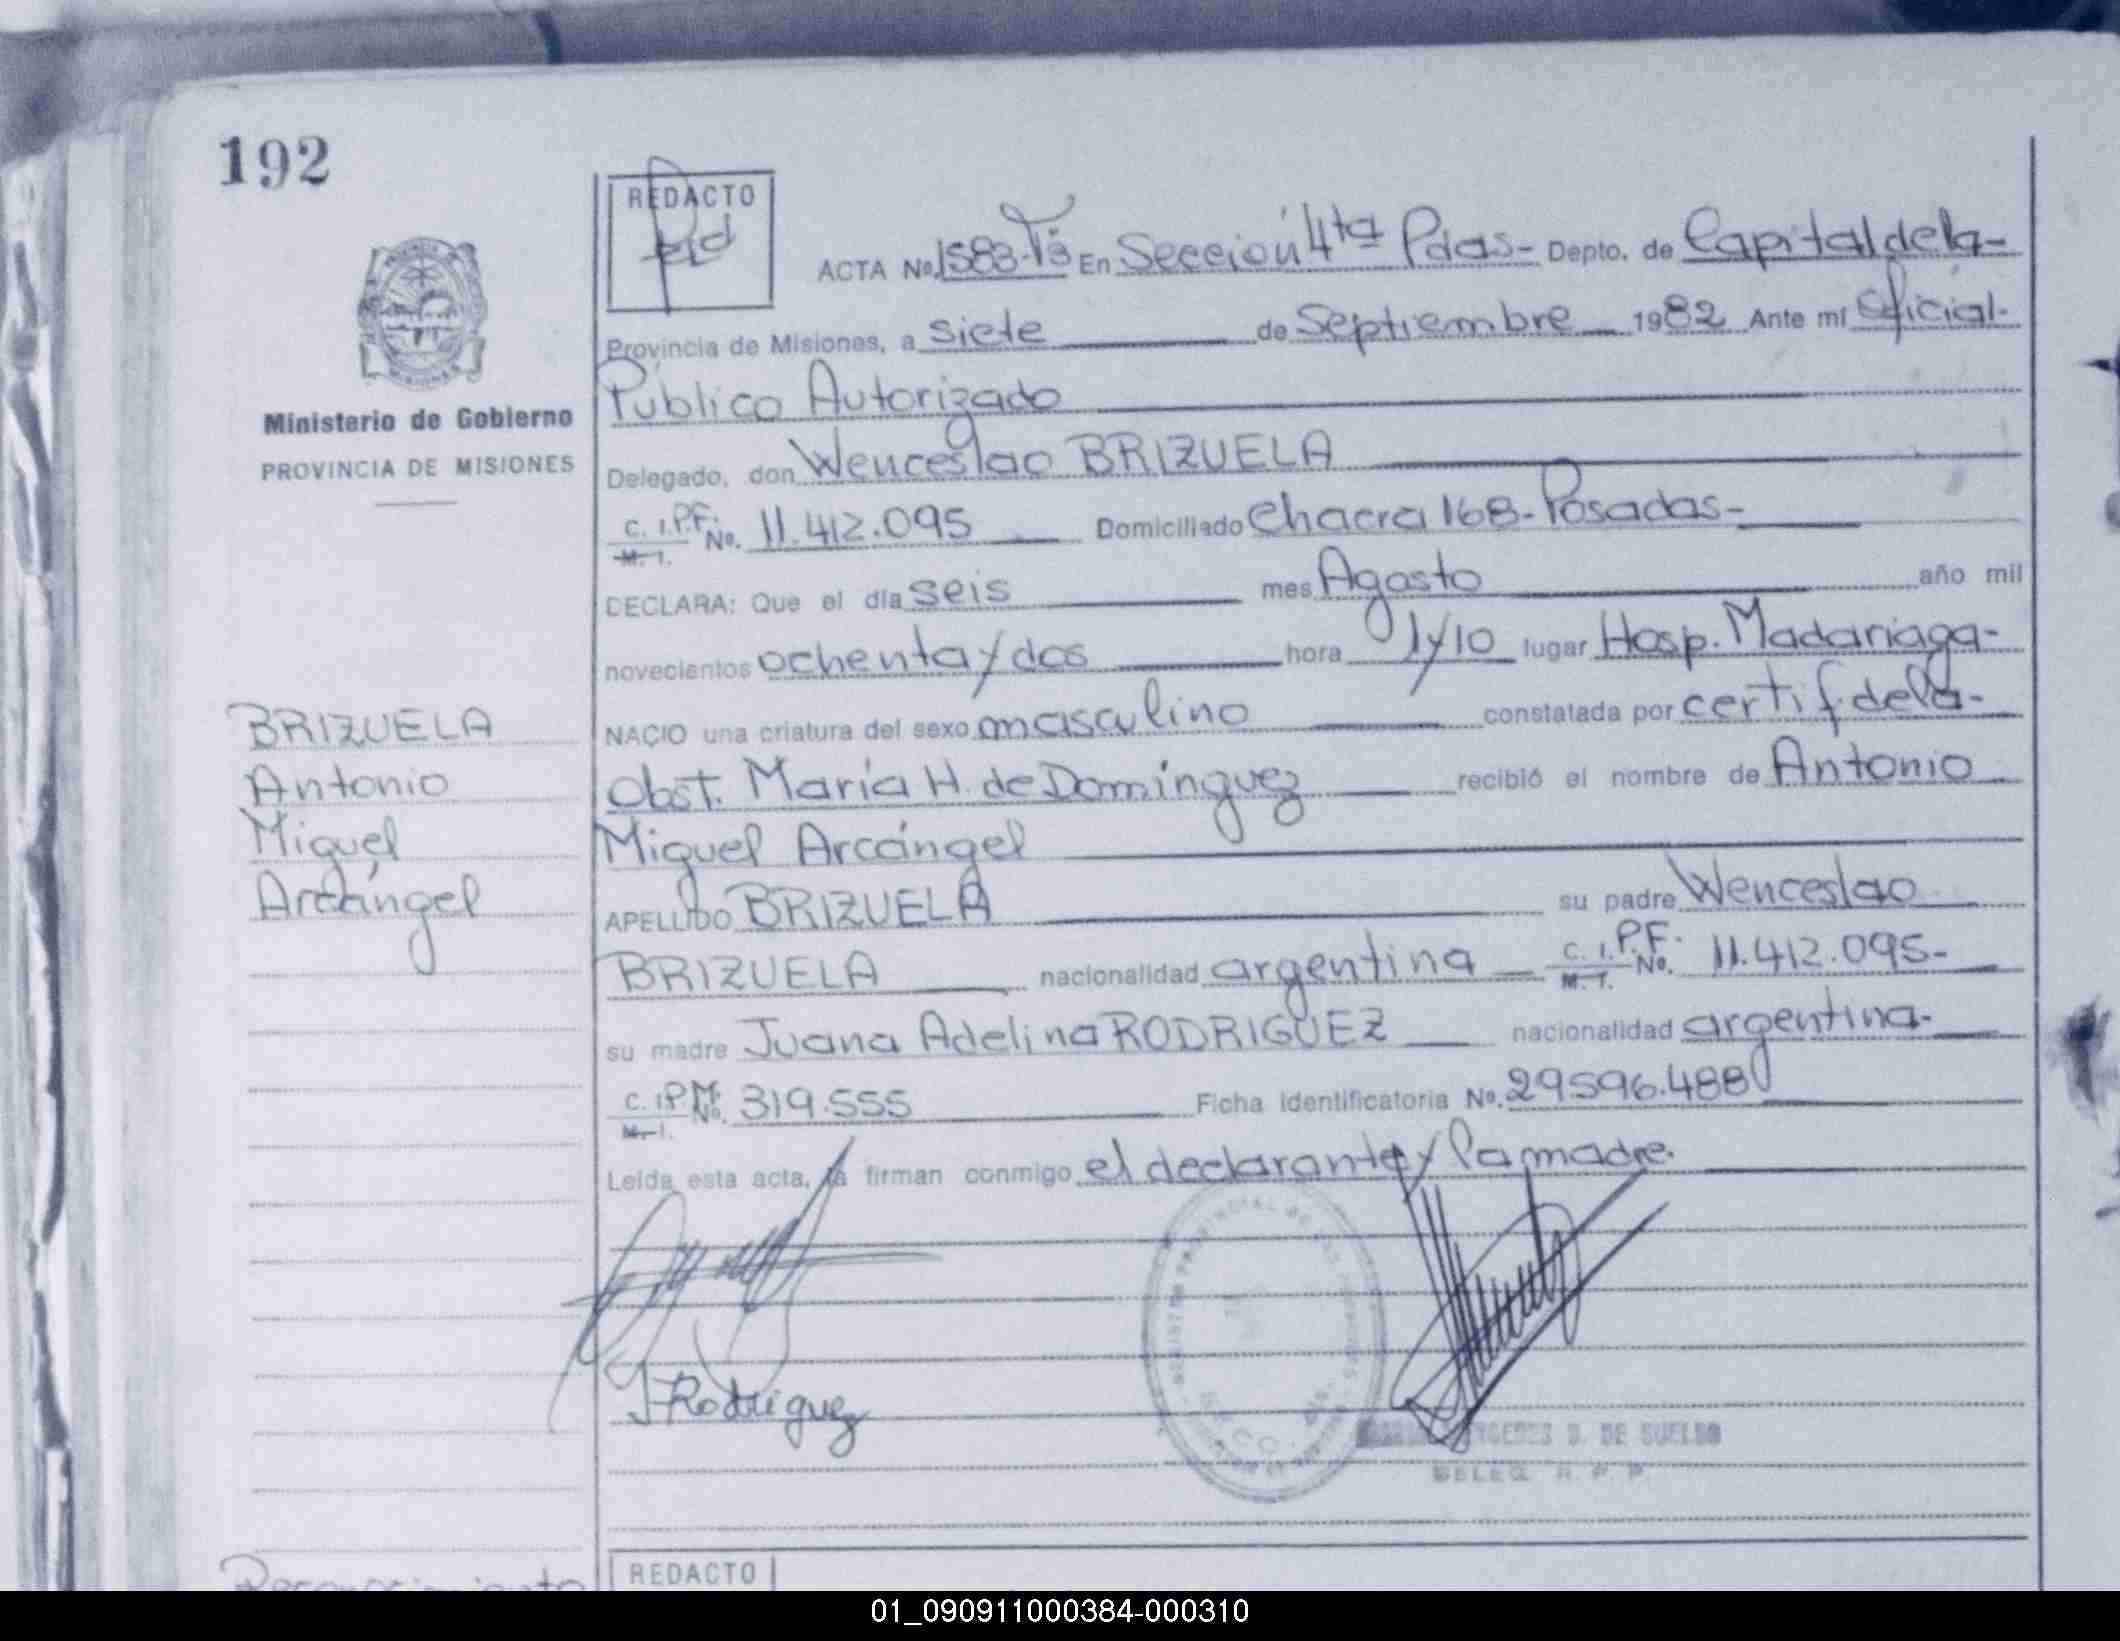 192
REDACTO
ACTA No. 1583-Tº En Sección 4ta Pdas- Depto. de Capital de la-
Provincia de Misiones, a siete de Septiembre 1982 Ante mí Oficial-
Público Autorizado
Ministerio de Gobierno
PROVINCIA DE MISIONES
Delegado, don Wenceslao BRIZUELA
C. I. P.F. No. 11.412.095 Domiciliado Chacra 168-Posadas-
M. I.
DECLARA: Que el día seis mes Agosto año mil
novecientos ochenta y dos hora 1 y 10 lugar Hosp. Madariaga-
NACIO una criatura del sexo masculino constatada por certif de la-
Obst. María H. de Domínguez recibió el nombre de Antonio
Miguel Arcángel
APELLIDO BRIZUELA su padre Wenceslao
BRIZUELA nacionalidad argentina C. I. P.F. No. 11.412.095-
M. I.
su madre Juana Adelina RODRIGUEZ nacionalidad argentina-
C. I. P M. No. 319.555 Ficha identificatoria No. 29596.488
M. I.
Leída esta acta, la firman conmigo el declarante y la madre.
BRIZUELA
Antonio
Miguel
Arcángel
J Rodriguez
REGISTRO PROVINCIAL DE LAS PERSONAS
DE SUELDO
DELEG. R. P. P.
Reconocimiento
REDACTO
01_090911000384-000310